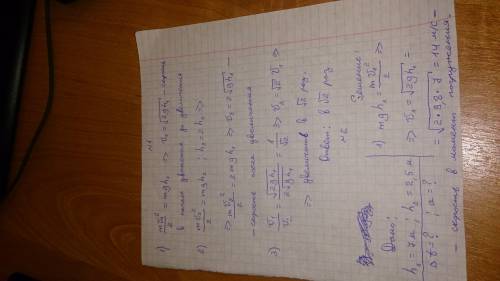 №1
1) mv₁²/2 = mgh₁ ⇒ v₁ = √2gh₁ – скорость
в начале движения до увеличения
2) mv₂²/2 = mgh₂ ; h₂ = 2h₁ ⇒
⇒ mv₂²/2 = 2mgh₁ ⇒ v₂ = 2√gh₁ –
– скорость после увеличения
3) v₁/v₂ = √2gh₁/2√gh₁ = 1/√2 ⇒ v₂ = √2 v₁ ⇒
⇒ увеличить в √2 раз.
Ответ: в √2 раз
№2
Дано:
h₁ = 7м, h₂ = 2,5 м
Δt = ? , a = ?
Решение:
1) mgh₁ = mv₁²/2 ⇒
⇒ v₁ = √2gh₁ =
= √2·9,8·7 = 14 м/с –
– скорость в момент погружения.